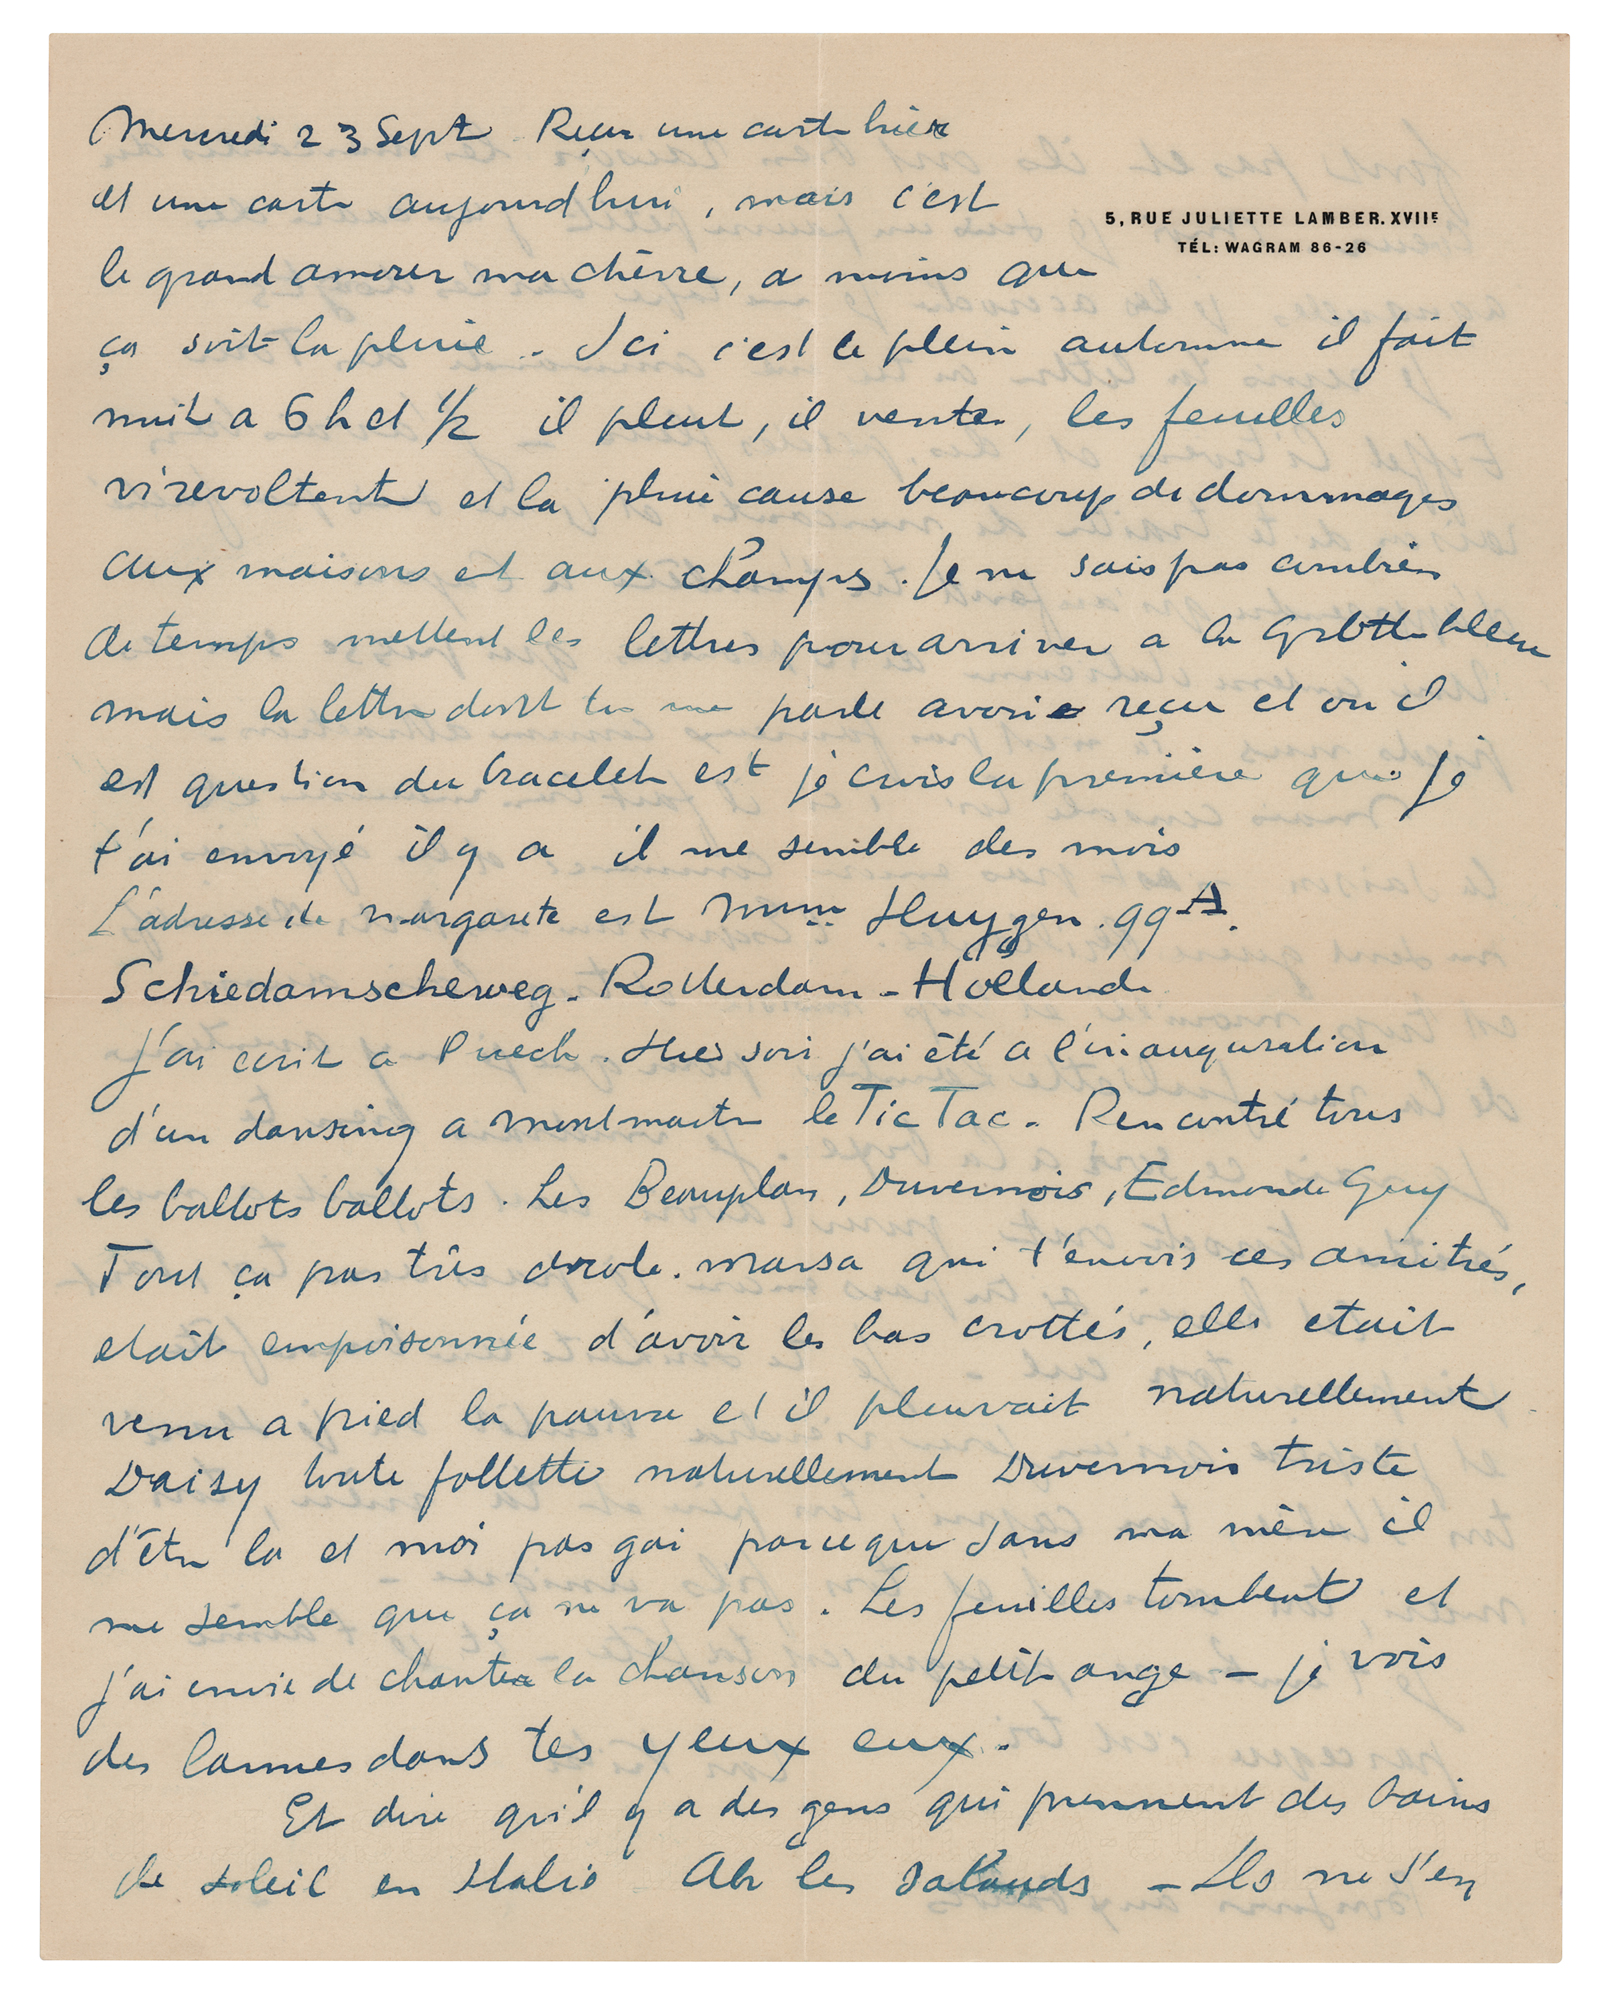 Mercredi 23 Sept Reçu une carte hier
et une carte aujourd'hui, mais c'est
5, RUE JULIETTE LAMBER. XVIIE
TÉL: WAGRAM 86-26
le grand amour ma chère, a moins que
ça soit la pluie - Ici c'est le plein automne il fait
nuit a 6 h et 1/2 il pleut, il vente, les feuilles
virevoltent et la pluie cause beaucoup de dommages
aux maisons et aux champs. Je ne sais pas combien
de temps mettent les lettres pour arriver a la Grotte bleue
mais la lettre dont tu me parle avoir reçu et ou il
est question du bracelet est je crois la première que je
t'ai envoyé il y a il me semble des mois
L'adresse de Margarete est Mme Huygen. 99 A.
Schiedamscheweg - Rotterdam - Hollande
J'ai ecrit a Puech. Hier soir j'ai été a l'inauguration
d'un dansing a Montmartre le Tic Tac - Rencontré tous
les ballots ballots. Les Beauplan, Duvernois, Edmonde Guy
Tout ça pas très drole. Marsa qui t'envois ces amitiés,
etait empoisonnée d'avoir les bas crottés, elle etait
venu a pied la pauvre et il pleuvait naturellement
Daisy toute follette naturellement Duvernois triste
d'être la et moi pas gai parceque sans ma mère il
me semble que ça ne va pas. Les feuilles tombent et
j'ai envie de chanter la chanson du petit ange - je vois
des larmes dans tes yeux eux.
Et dire qu'il y a des gens qui prennent des bains
de soleil en Italie Ah les salauds - Ils ne s'en